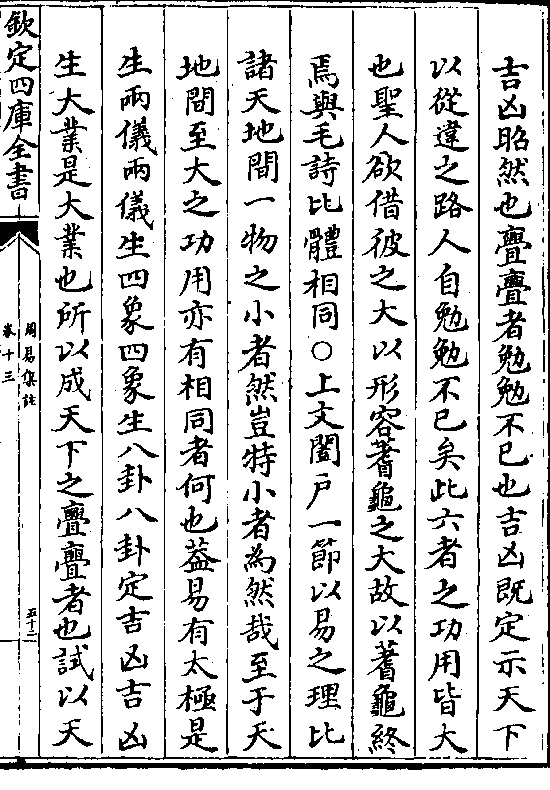 吉凶昭然也亹亹者勉勉不已也吉凶既定示天下
以從違之路人自勉勉不已矣此六者之功用皆大
也聖人欲借彼之大以形容蓍龜之大故以蓍龜終
焉與毛詩比體相同○上文闔戶一節以易之理比
諸天地間一物之小者然豈特小者為然哉至于天
地間至大之功用亦有相同者何也葢易有太極是
生兩儀兩儀生四象四象生八卦八卦定吉凶吉凶
生大業是大業也所以成天下之亹亹者也試以天
欽定四庫全書
周易集註
卷十三
五十二